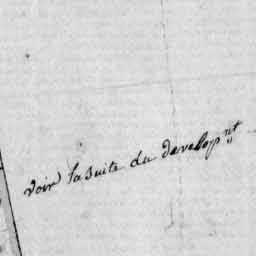 voir la suite du developnt